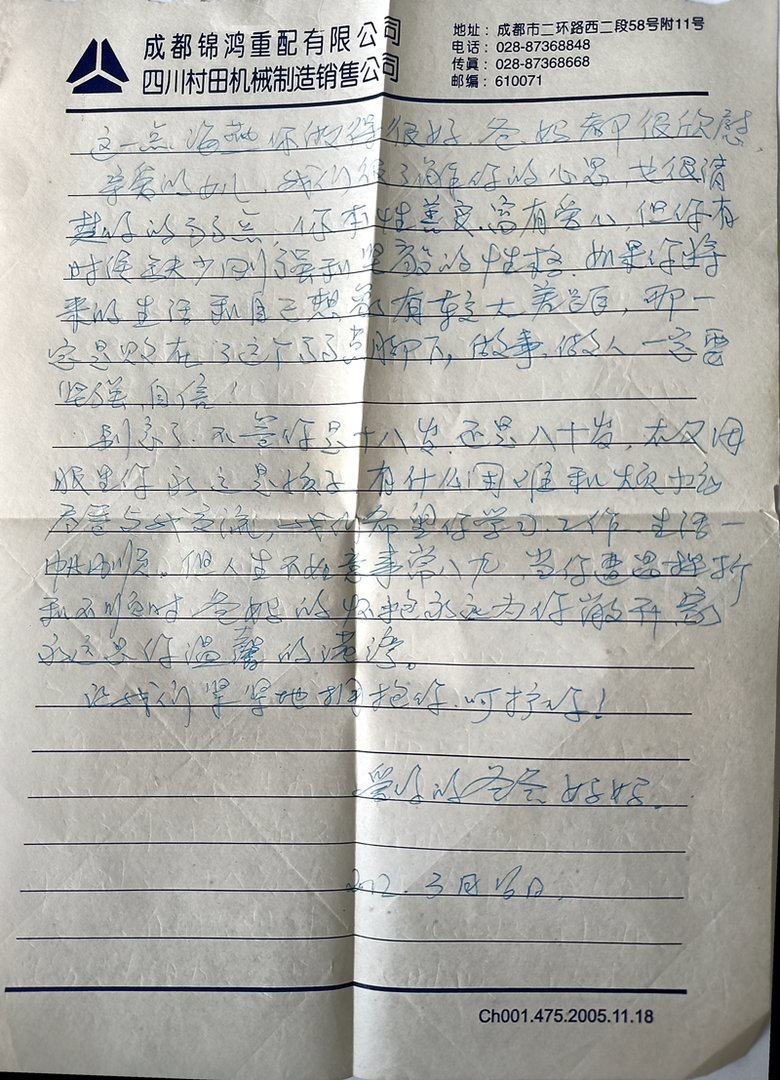 成都锦鸿重配有限公司
四川村田机械制造销售公司
地址：成都市二环路西二段58号附11号
电话：028-87368848
传真：028-87368668
邮编：610071
这一点海燕你做得很好，爸、妈都很欣慰
亲爱的女儿，我们很了解你的心思，也很清
楚你的弱点，你本性善良、富有爱心，但你有
时候缺少刚强和坚毅的性格，如果你将
来的生活和自己想象有较大差距，那一
定是败在了这个弱点脚下，做事、做人一定要
坚强、自信！
别忘了，不管你是十八岁，还是八十岁，在父母
眼里你永远是孩子，有什么困难和烦恼
尽管与我交流，我们希望你学习、工作、生活一
帆风顺。但人生不如意事常八九，当你遭遇挫折
和不顺时，爸妈的怀抱永远为你敞开，家
永远是你温馨的港湾。
让我们紧紧地拥抱你、呵护你！
爱你的爸爸妈妈.
3月 日.
Ch001.475.2005.11.18